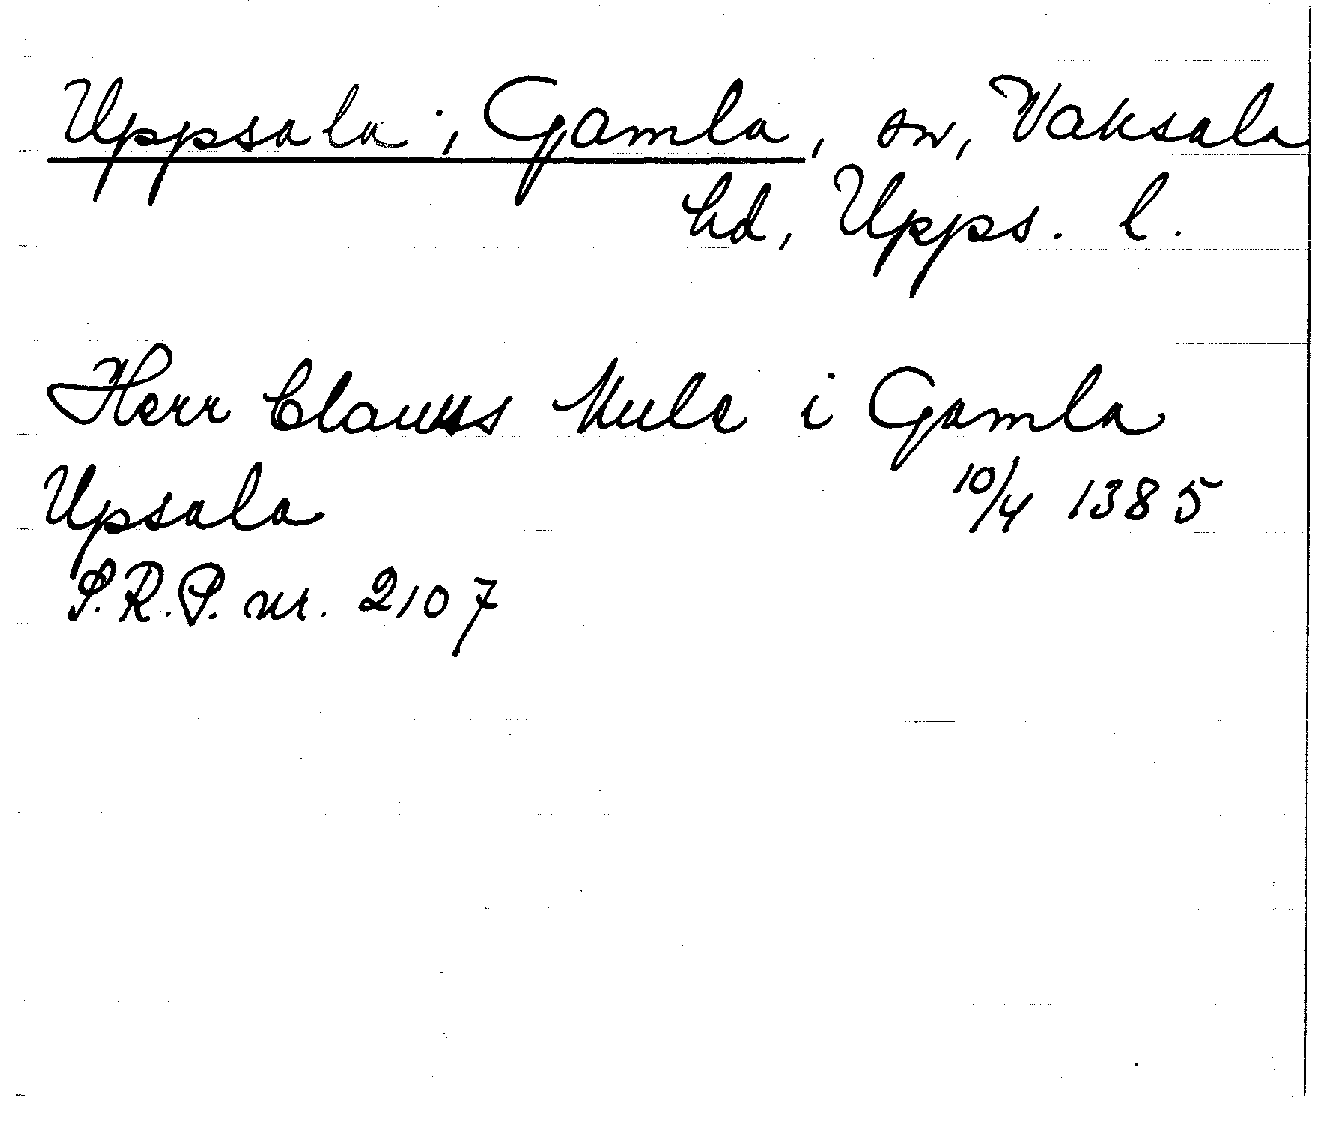 Uppsala, Gamla, sn, Vaksala
hd, Upps. l.
Herr Clauus Mule i Gamla
Upsala 10/4 1385
S.R.P. nr. 2107